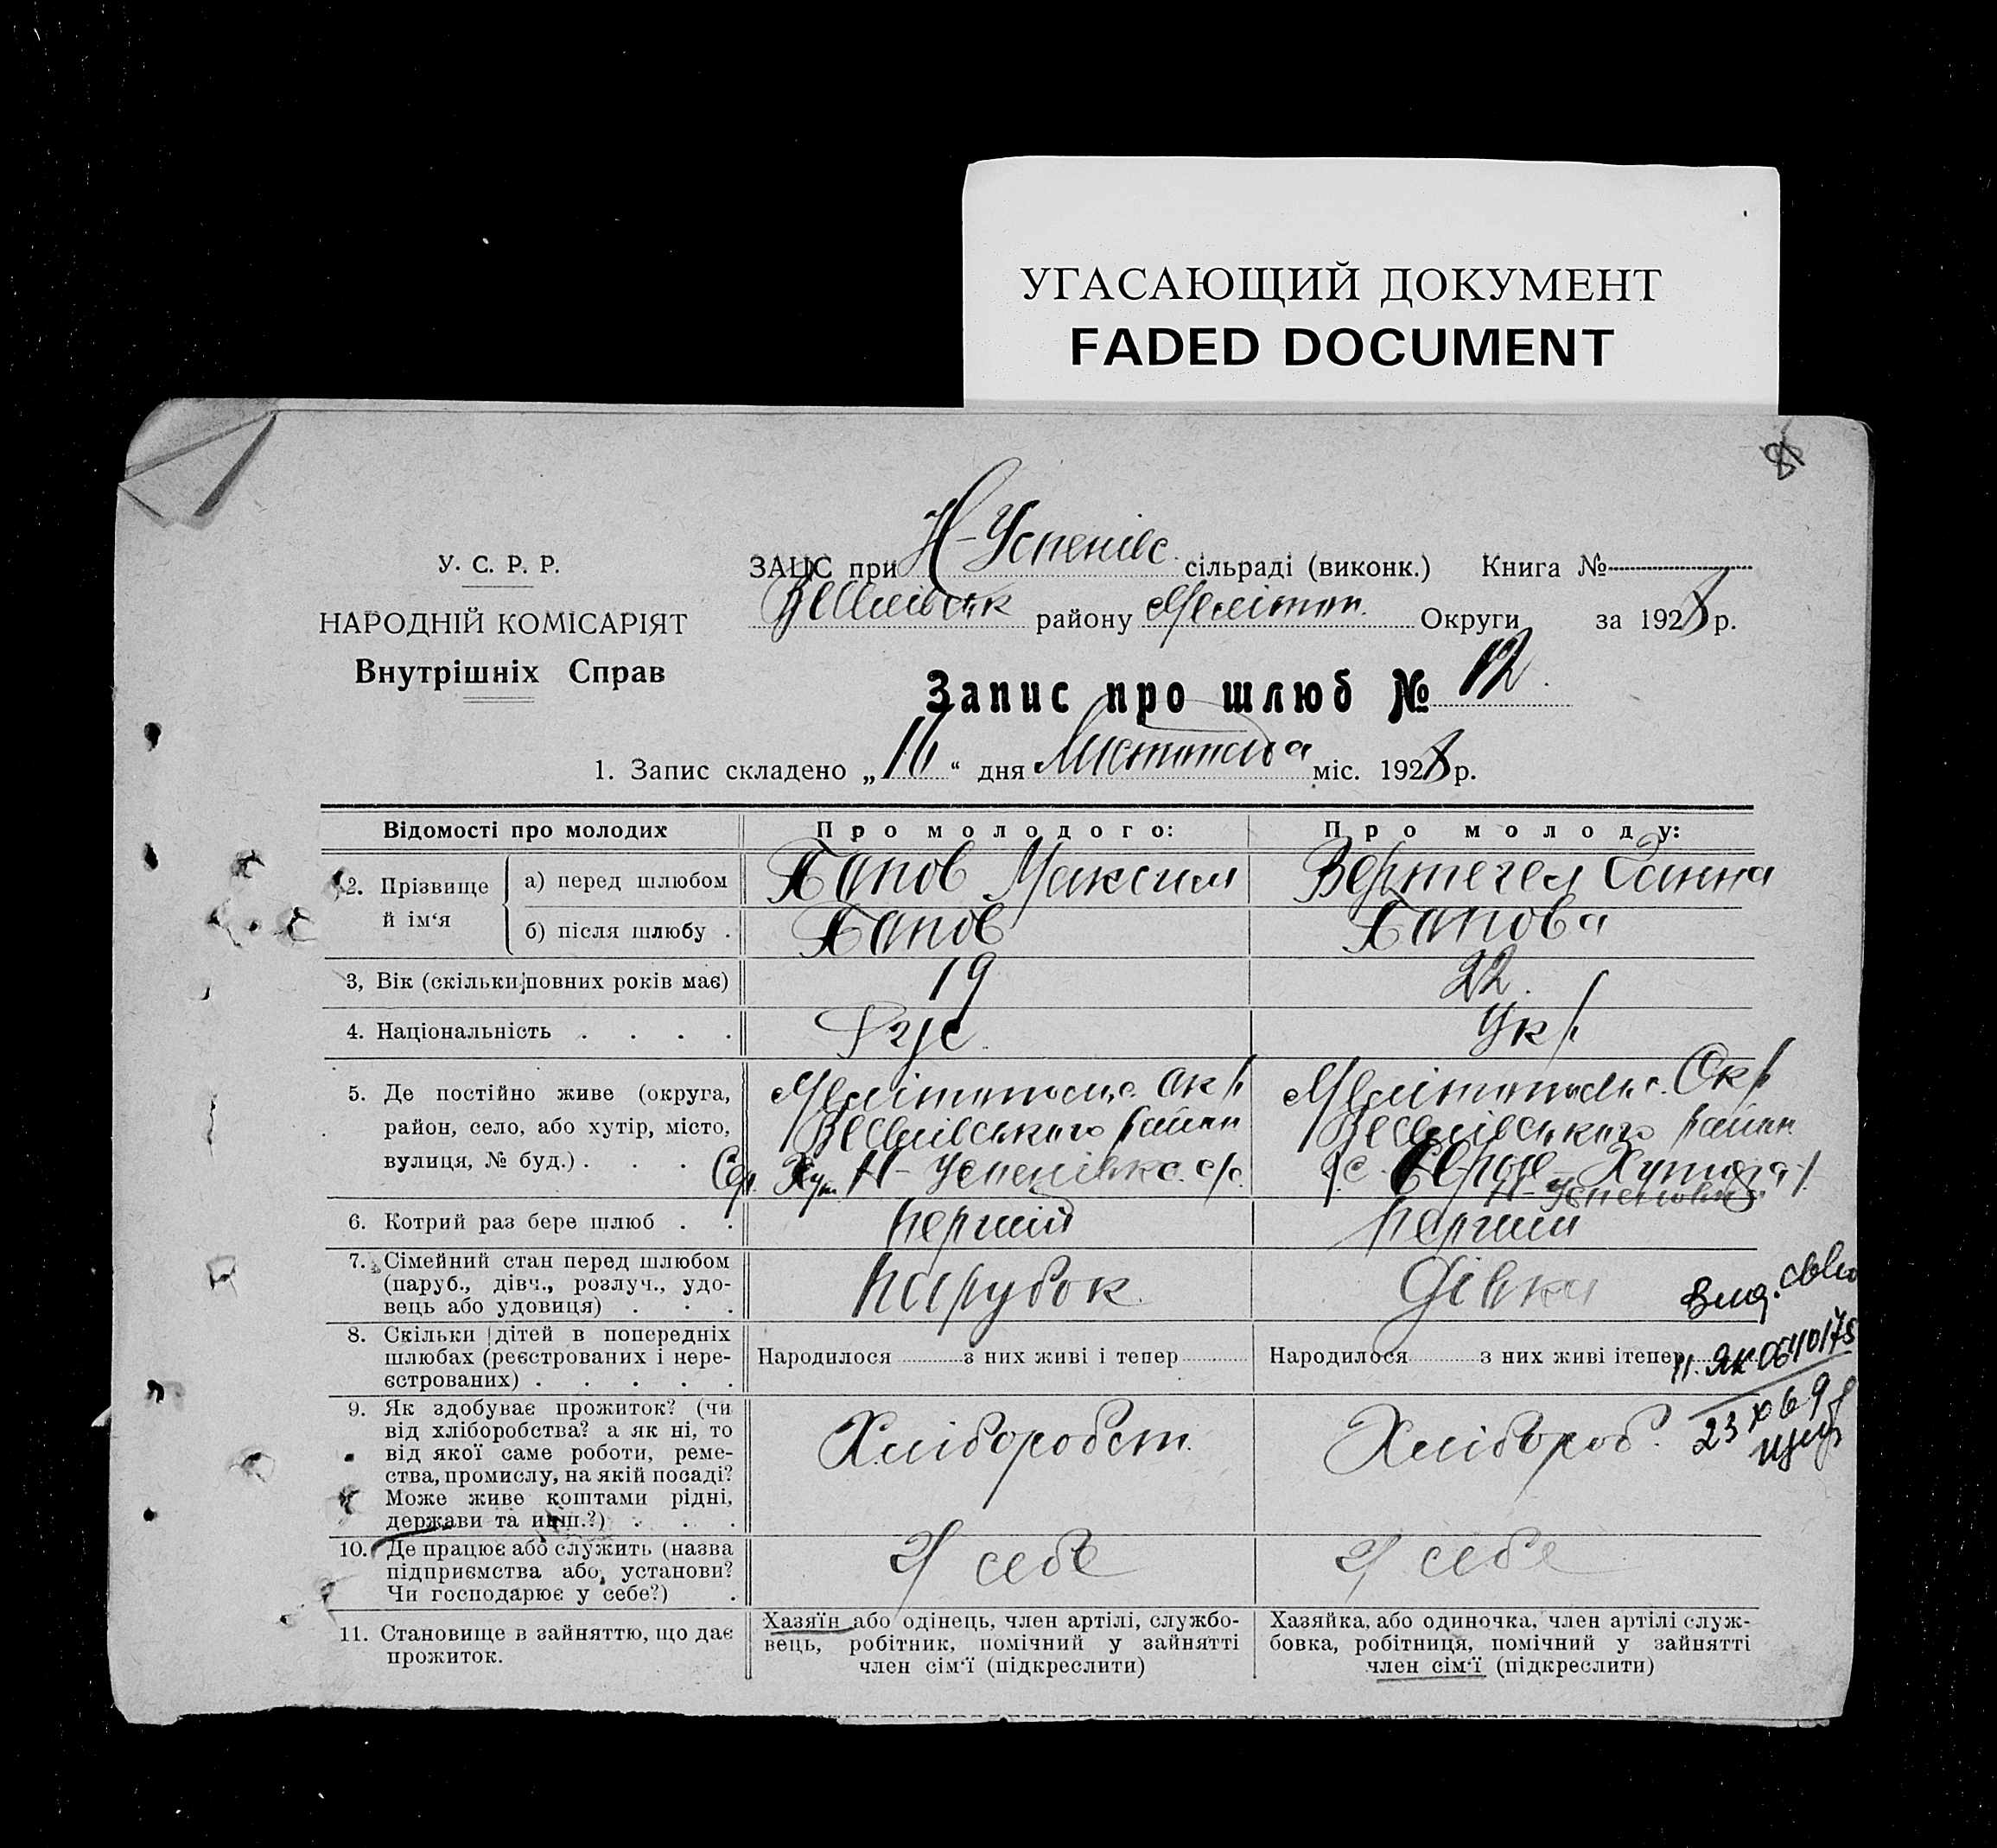 УГАСАЮЩИЙ ДОКУМЕНТ
FADED DOCUMENT
У. С. Р. Р.
НАРОДНІЙ КОМІСАРІЯТ
Внутрішніх Справ
ЗАЦС при Н-Успенівс. сільраді (виконк.) Книга №
Веселівськ району Мелітоп. Округи за 1928 р.
Запис про шлюб № 12.
1. Запис складено „16“ дня Листопада міс. 1928 р.
Відомості про молодих Про молодого: Про молоду:
2. Прізвище й ім‘я
а) перед шлюбом Попов Максим Вертегел Ганна
б) після шлюбу . Попов Попова
3, Вік (скільки повних років має) 19 22.
4. Національність . . . . Рус. Укр
5. Де постійно живе (округа,
район, село, або хутір, місто,
вулиця, № буд.) . . .
Мелітопольс. Окр
Веселівського район
Н-Успенівкс. с/с.
Мелітопольс. Окр
Веселівського район
Н-Успенівка
6. Котрий раз бере шлюб . . перший перший
7. Сімейний стан перед шлюбом
(паруб., дівч., розлуч., удо-
вець або удовиця) . . .
парубок. дівка
8. Скільки дітей в попередніх
шлюбах (реєстрованих і нере-
єстрованих) . . . . .
Народилося з них живі і тепер
Народилося з них живі ітепер
Выд.
9. Як здобуває прожиток? (чи
від хліборобства? а як ні, то
від якої саме роботи, реме-
ства, промислу, на якій посаді?
Може живе коштами рідні,
держави та инш.?) . . .
Хліборобст. Хлібороб.
10. Де працює або служить (назва
підприємства або установи?
Чи господарює у себе?) .
У себе У себе
11. Становище в зайняттю, що дає
прожиток.
Хазяїн або одінець, член артілі, службо-
вець, робітник, помічний у зайнятті
член сім‘ї (підкреслити)
Хазяйка, або одиночка, член артілі служ-
бовка, робітниця, помічний у зайнятті
член сім‘ї (підкреслити)